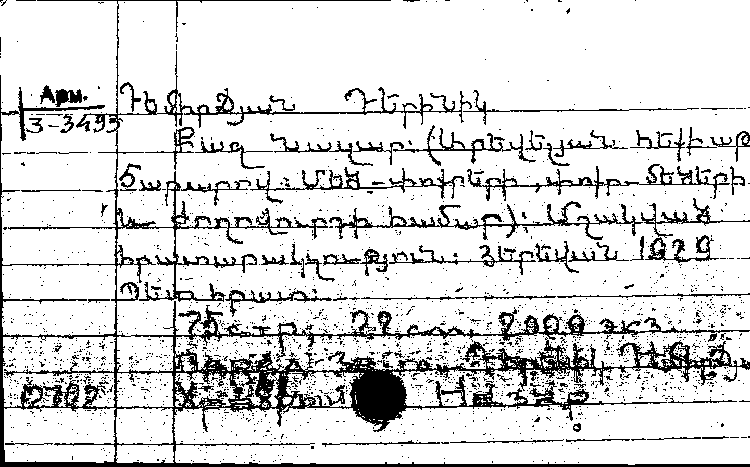 Арм.
3-3493
Դեմիրճյան Դերենիկ
Քաջ Նազար: (Արևելյան հեքիաթ
5 արարով: Մեծ-փոքրերի, փոքր-մեծերի
և ժողովուրդի համար): Մշակված
հրատարակություն: Յերեվան 1929
Պետ հրատ:
75 стр, 22 см. 2000 экз.